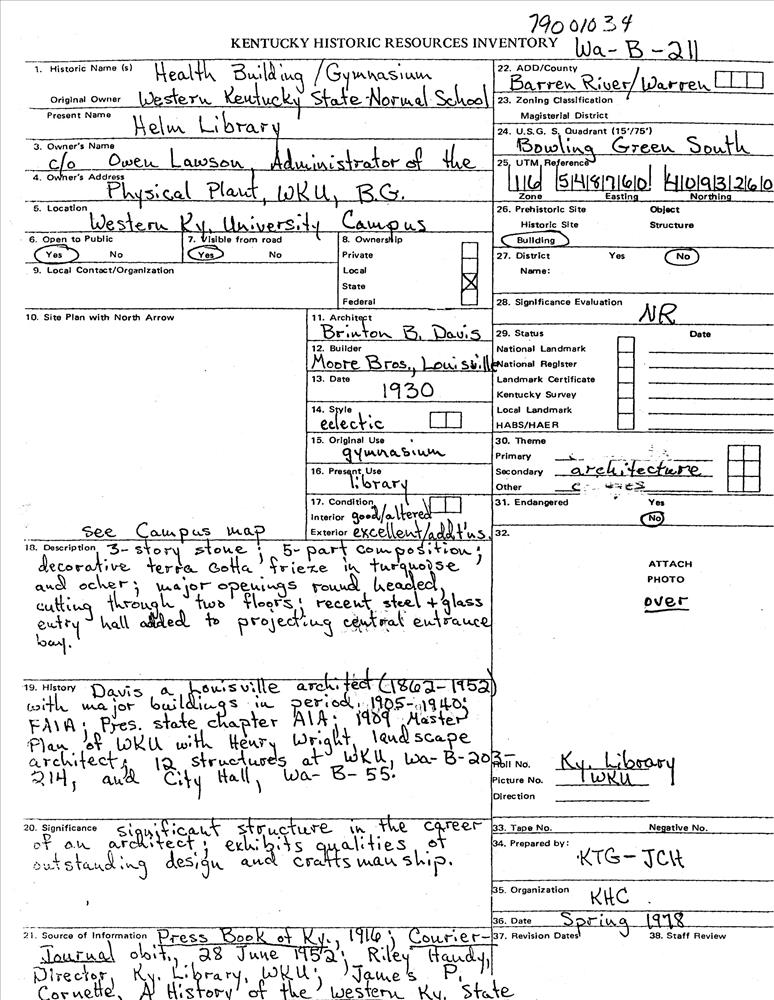 79001034
KENTUCKY HISTORIC RESOURCES INVENTORY Wa-B-211
1. Historic Name (s) Health Building/Gymnasium
Original Owner Western Kentucky State Normal School
Present Name Helm Library
3. Owner's Name c/o Owen Lawson, Administrator of the
4. Owner's Address Physical Plant, WKU, B.G.
5. Location Western Ky. University Campus
6. Open to Public
Yes No
7. Visible from road
Yes No
8. Ownership
Private
Local
State
Federal
9. Local Contact/Organization
10. Site Plan with North Arrow
see Campus map
11. Architect
Brinton B. Davis
12. Builder
Moore Bros., Louisville
13. Date
1930
14. Style
eclectic
15. Original Use
gymnasium
16. Present Use
library
17. Condition
Interior good/altered
Exterior excellent/addt'ns.
18. Description 3-story stone; 5-part composition;
decorative terra cotta frieze in turquoise
and ocher; major openings round headed,
cutting through two floors; recent steel + glass
entry hall added to projecting central entrance
bay.
19. History Davis a Louisville architect (1862-1952)
with major buildings in period, 1905-1940;
FAIA; Pres. state chapter AIA; 1909 Master
Plan of WKU with Henry Wright, landscape
architect; 12 structures at WKU, Wa-B-203-
214, and City Hall, Wa-B-55.
20. Significance significant structure in the career
of an architect; exhibits qualities of
outstanding design and craftsmanship.
21. Source of Information Press Book of Ky., 1916; Courier-
Journal obit., 28 June 1952; Riley Handy,
Director, Ky. Library, WKU; James P.
Cornette, A History of the Western Ky. State
22. ADD/County
Barren River/Warren
23. Zoning Classification
Magisterial District
24. U.S.G. S. Quadrant (15'/75')
Bowling Green South
25. UTM Reference
16 548760 4093260
Zone Easting Northing
26. Prehistoric Site Object
Historic Site Structure
Building
27. District Yes No
Name:
28. Significance Evaluation
NR
29. Status Date
National Landmark
National Register
Landmark Certificate
Kentucky Survey
Local Landmark
HABS/HAER
30. Theme
Primary
Secondary architecture
Other
31. Endangered Yes
No
32.
ATTACH
PHOTO
over
Roll No. Ky. Library
Picture No. WKU
Direction
33. Tape No. Negative No.
34. Prepared by:
KTG-JCH
35. Organization
KHC
36. Date Spring 1978
37. Revision Dates 38. Staff Review